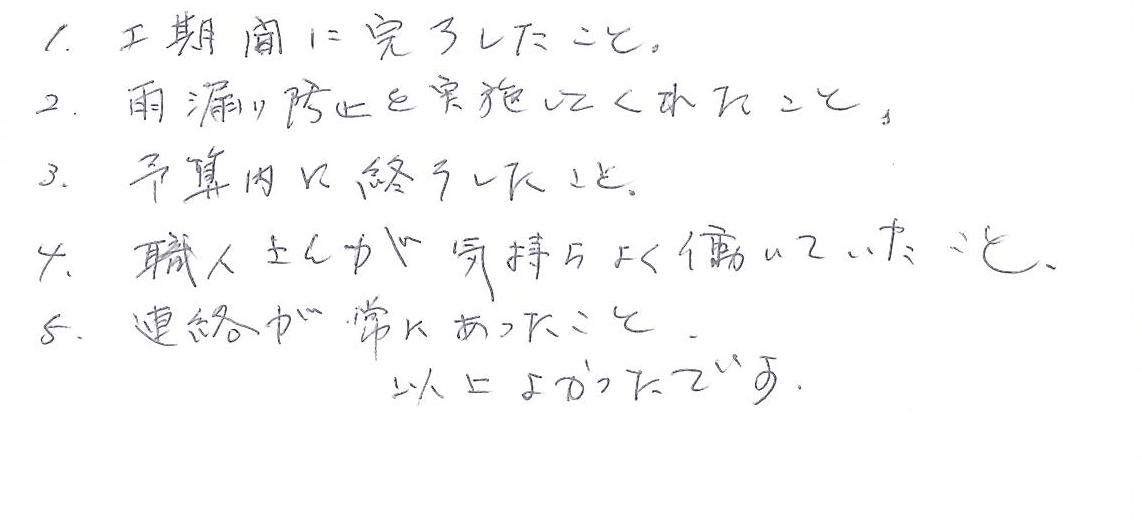 1. 工期間に完了したこと。
2. 雨漏り防止を実施してくれたこと。
3. 予算内に終了したこと。
4. 職人さんが気持ちよく働いていたこと、
5. 連絡が常にあったこと.
以上よかったです.